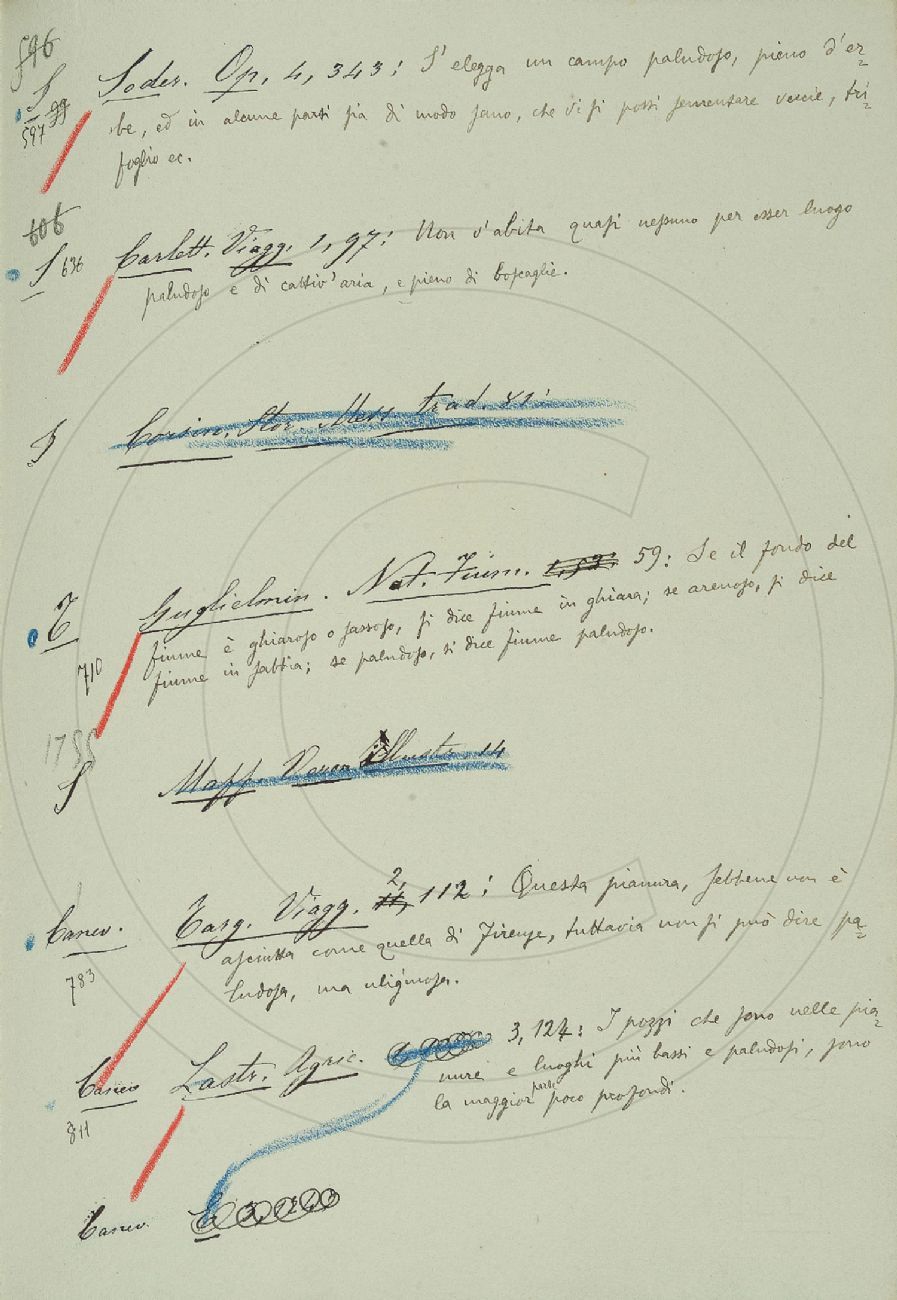 596
S Soder. Op. 4, 343: S'elegga un campo paludoso, pieno d'er=
597 be, ed in alcune parti sia di modo sano, che vi si possi sementare veccie, tri=
foglio ec.
606
S 636 Carlett. Viagg. 1, 97: Non v'abita quasi nessuno per esser luogo
paludoso e di cattiv'aria, e pieno di boscaglie.
S Corsin. Stor. Mess. trad. 81:
T Guglielmin. Nat. Fium. 1, 59: 59: Se il fondo del
fiume è ghiaroso o sassoso, si dice fiume in ghiara; se arenoso, si dice
710 fiume in sabbia; se paludoso, si dice fiume paludoso.
1755
S Maff. Veron. illustr. 14
Canev. Targ. Viagg. 2, 112: Questa pianura, sebbene non è
783 asciutta come quella di Firenze, tuttavia non si può dire pa=
ludosa, ma uliginosa.
Canev. Lastr. Agric. 3, 124: I pozzi che sono nelle pia=
811 nure e luoghi più bassi e paludosi, sono
la maggior parte poco profondi.
Canev.